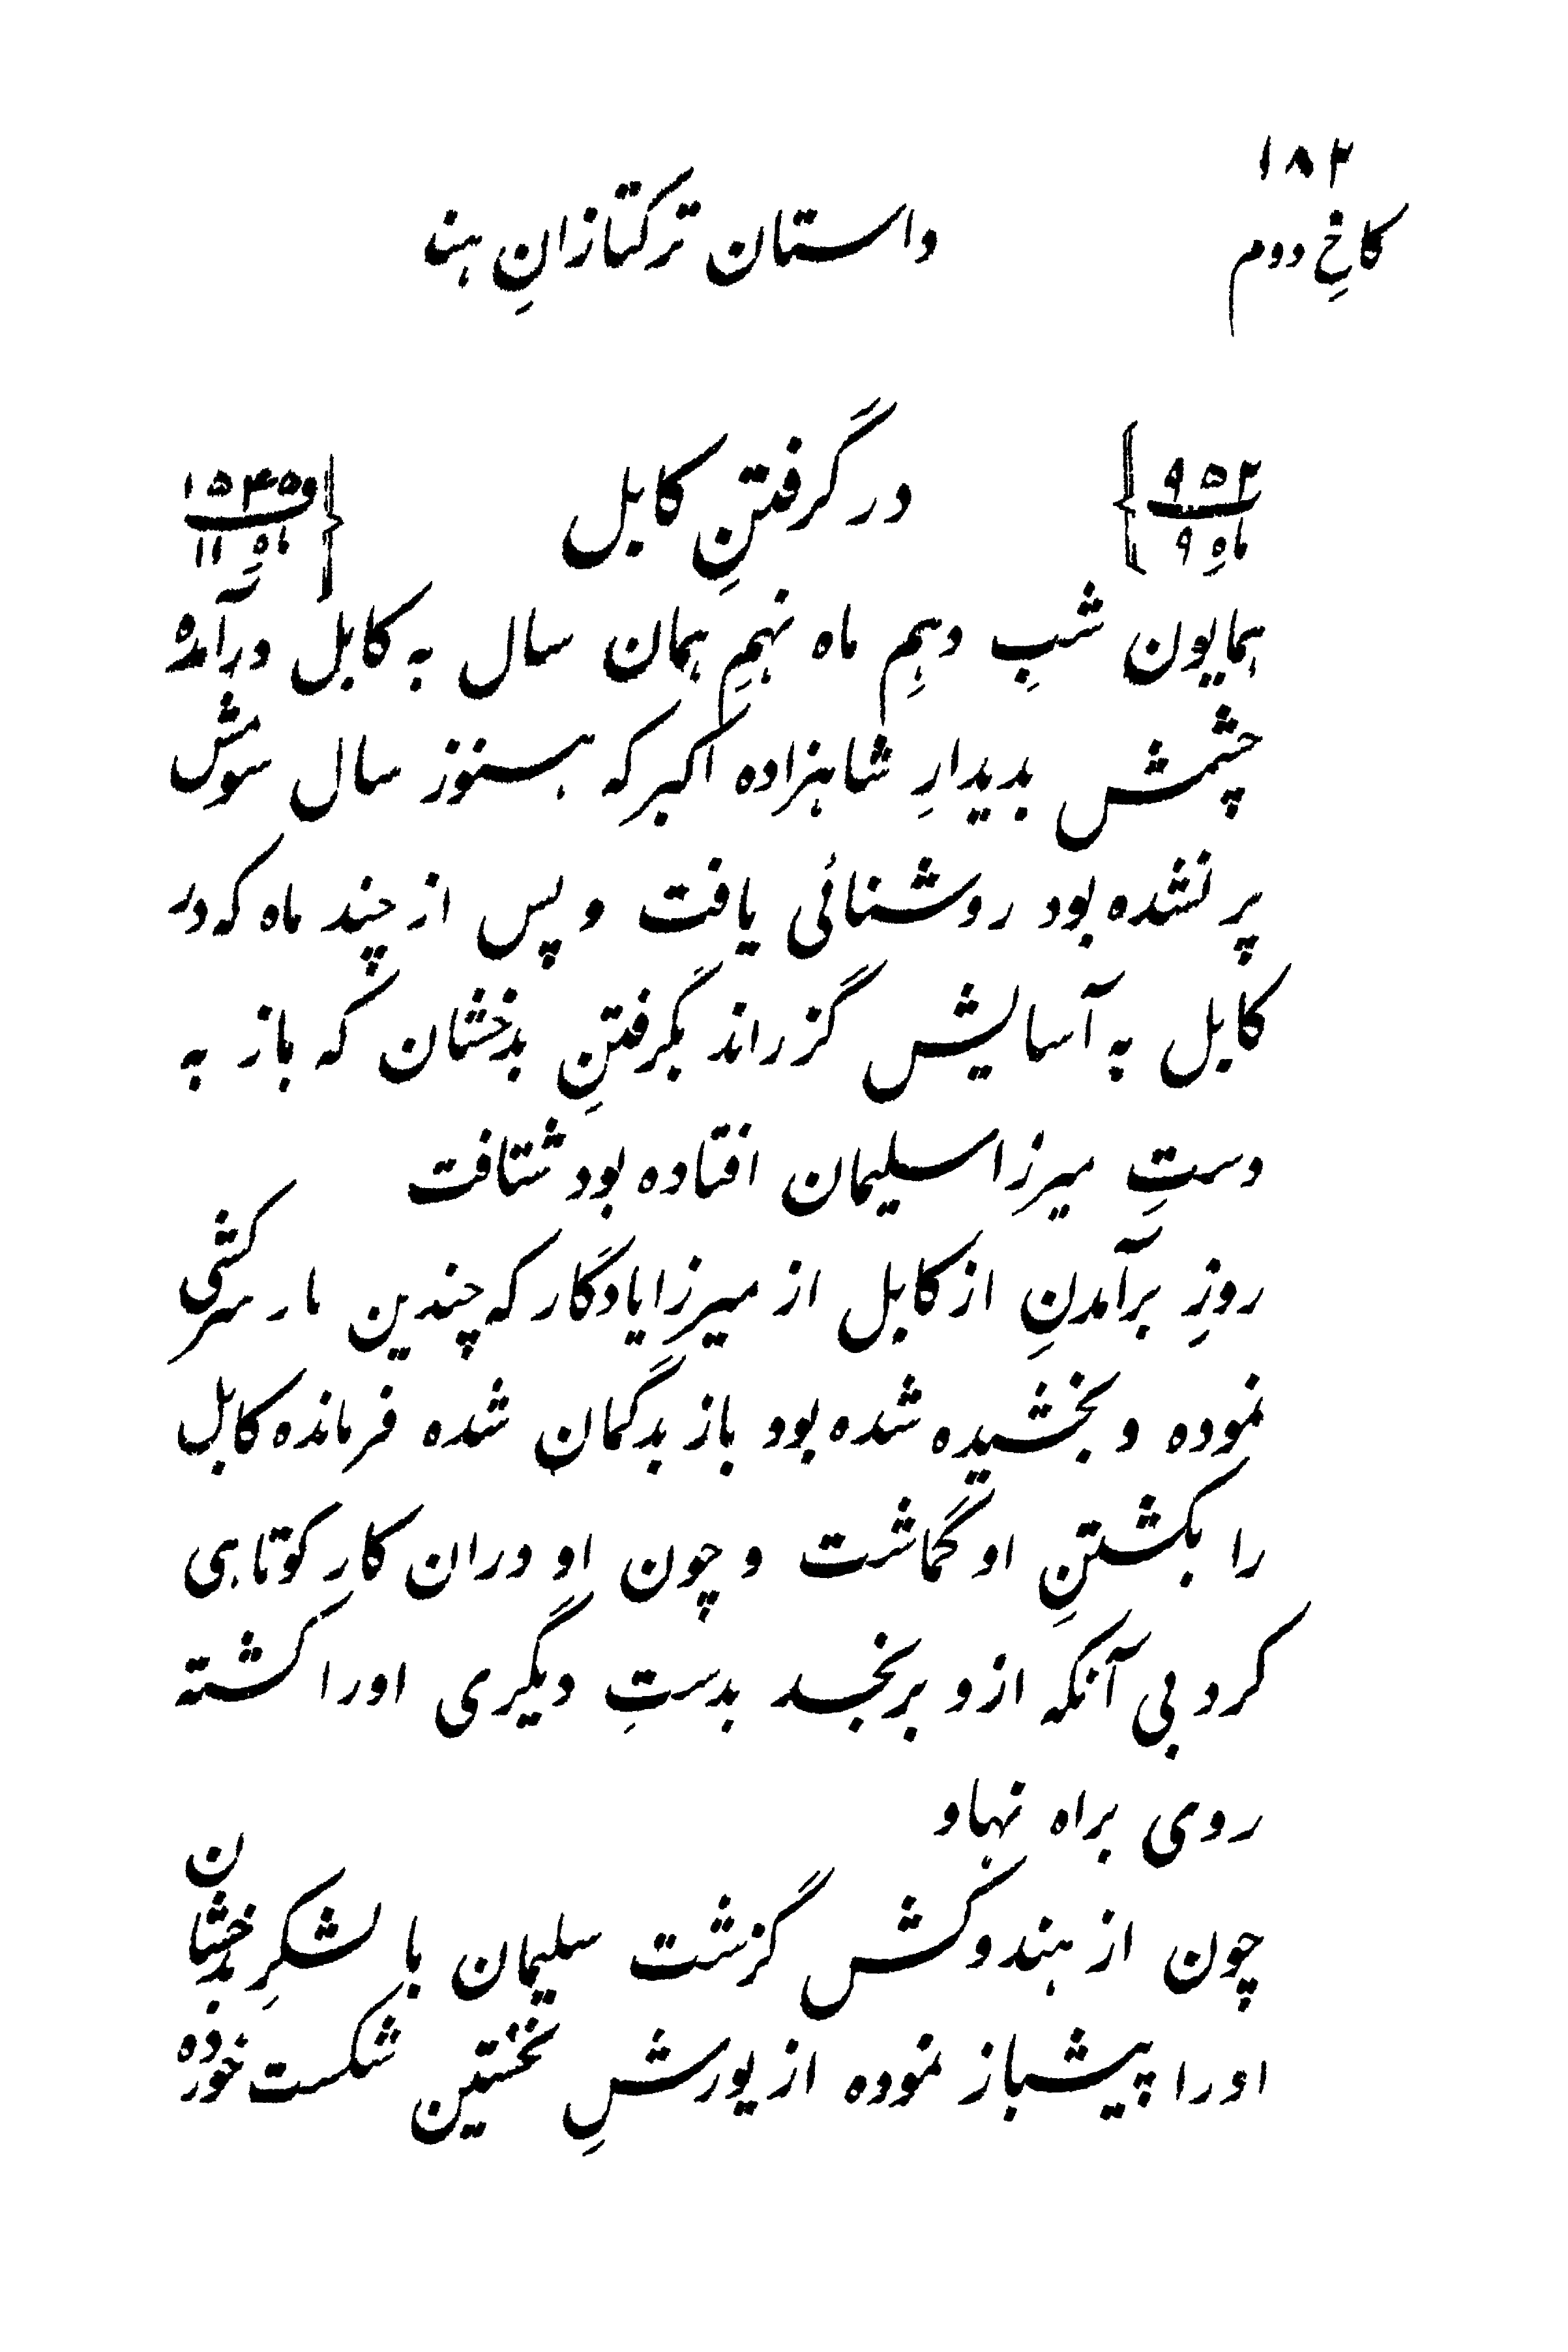 ۱۸۲
کاخِ دوم
داستان ترکتازانِ هند
۹۵۲ ماهِ ۹
در گرفتنِ کابل
۱۵۴۵ ماهِ ۱۱
همایون شبِ دهمِ ماه نهمِ همان سال به کابل درآمده
چشمش بدیدارِ شاهزاده اکبر که هنوز سال سومش
پر نشده بود روشنائی یافت و پس از چند ماه که در
کابل به آسایش گزراند بگرفتنِ بدخشان که باز به
دستِ میرزا سلیمان افتاده بود شتافت
روزِ برآمدنِ از کابل از میرزا یادگار که چندین بار سرکشی
نموده و بخشیده شده بود باز بدگمان شده فرمانده کابل
را بکشتنِ او گماشت و چون او دران کارِ کوتاهی
کرد بی آنکه ازو برنجد بدستِ دیگری اورا کشته
روی براه نهاد
چون از هندوکش گزشت سلیمان با لشکرِ بدخشان
اورا پیشباز نموده از یورشِ نخستین شکست خورده